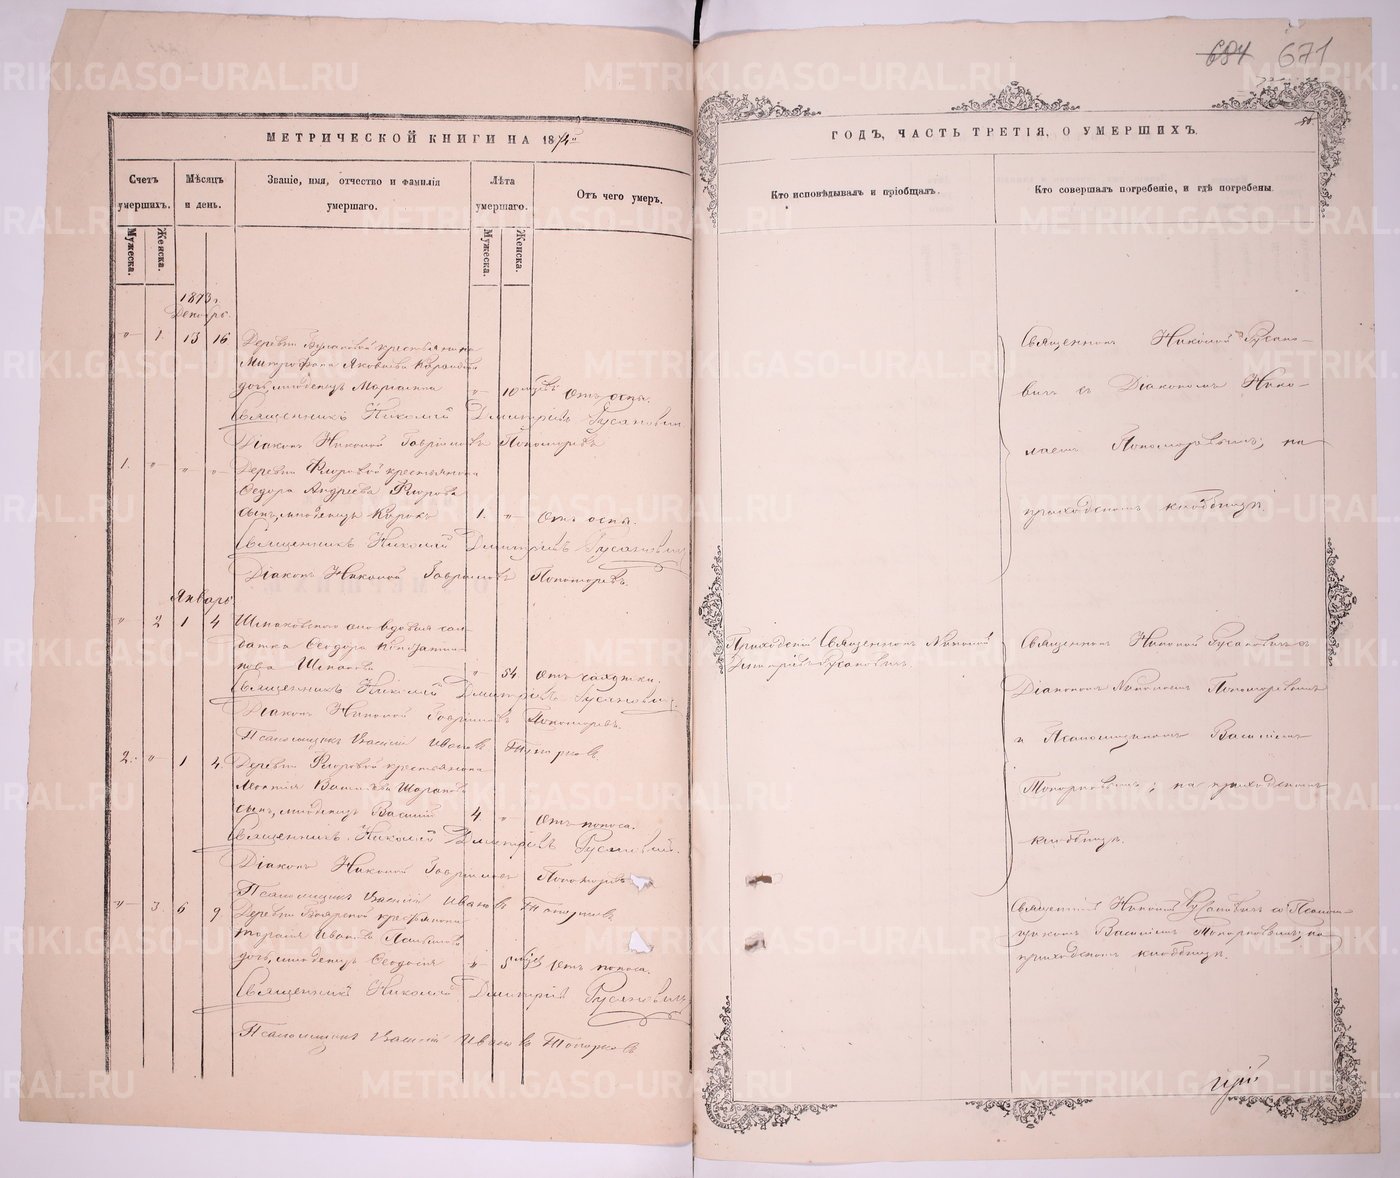 684 671
МЕТРИЧЕСКОЙ КНИГИ НА 1874й
Счетъ умершихъ.
Мѣсяцъ и день.
Званіе, имя, отчество и фамилія умершаго.
Лѣта умершаго.
Отъ чего умеръ.
Мужеска.
Женска.
Мужеска.
Женска.
1873 г.
Декабрь.
" 1. 13 16 Деревни крестьянина
Митрофана Яковлева
дочь, младенецъ Марианна " 10 мѣсяц. Отъ оспы.
Священникъ Николай Дмитріевъ Русановичъ
Діаконъ Николай Гавріиловъ Пономаревъ
1. " " " Деревни Фировой крестьянина
Ѳедора Андреева Фирова
сынъ, младенецъ Карпъ 1. " Отъ оспы.
Священникъ Николай Дмитріевъ Русановичъ
Діаконъ Николай Гавріиловъ Пономаревъ.
Январь
" 2 1 4 Шмаковского вдовая сол-
датка Ѳеодора Константи-
нова Шмакова " 54 Отъ
Священникъ Николай Дмитріевъ Русановичъ.
Діаконъ Николай Гавріиловъ Пономаревъ.
Псаломщикъ Василій Ивановъ Топорковъ.
2. " 1 4. Деревни Фировой крестьянина
Леонтія Васильева
сынъ, младенецъ Василій 4. " Отъ поноса.
Священникъ Николай Дмитріевъ Русановичъ.
Діаконъ Николай Гавріиловъ Пономаревъ
Псаломщикъ Василій Ивановъ Топорковъ
" 3. 6 9 Деревни Боярской крестьянина
Иванова
дочь, младенецъ Ѳеодосія " 5 мѣсяц. Отъ поноса.
Священникъ Николай Дмитріевъ Русановичъ
Псаломщикъ Василій Ивановъ Топорковъ
ГОДЪ, ЧАСТЬ ТРЕТІЯ, О УМЕРШИХЪ.
Кто исповѣдывалъ и пріобщалъ.
Кто совершалъ погребеніе, и гдѣ погребены.
Священникъ Николай Русано-
вичъ съ Діакономъ Нико-
лаемъ Пономаревымъ, на
приходскомъ кладбищѣ.
Приходскій Священникъ Николай
Дмитріевъ Русановичъ.
Священникъ Николай Русановичъ съ
Діакономъ Николаемъ Пономаревымъ
и Псаломщикомъ Василіемъ
Топорковымъ; на приходскомъ
кладбищѣ.
Священникъ Николай Русановичъ со Псалом-
щикомъ Василіемъ Топорковымъ, на
приходскомъ кладбищѣ.
METRIKI.GASO-URAL.RU